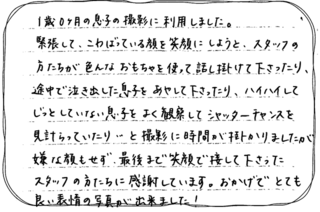 1歳0ヶ月の息子の撮影に利用しました。
緊張して、こわばっている顔を笑顔にしようと、スタッフの
方たちが色んなおもちゃを使って話し掛けて下さったり、
途中で泣き出した息子をあやして下さったり、ハイハイして
じっとしていない息子をよく観察してシャッターチャンスを
見計らっていたり…と撮影に時間が掛かりましたが
嫌な顔もせず、最後まで笑顔で接して下さった
スタッフの方たちに感謝しています。おかげでとても
良い表情の写真が出来ました！